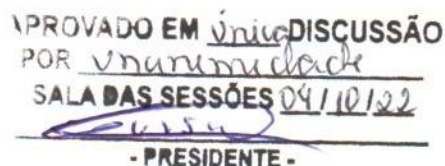 APROVADO EM única DISCUSSÃO
POR unanimidade
SALA DAS SESSÕES 04/10/22
- PRESIDENTE -